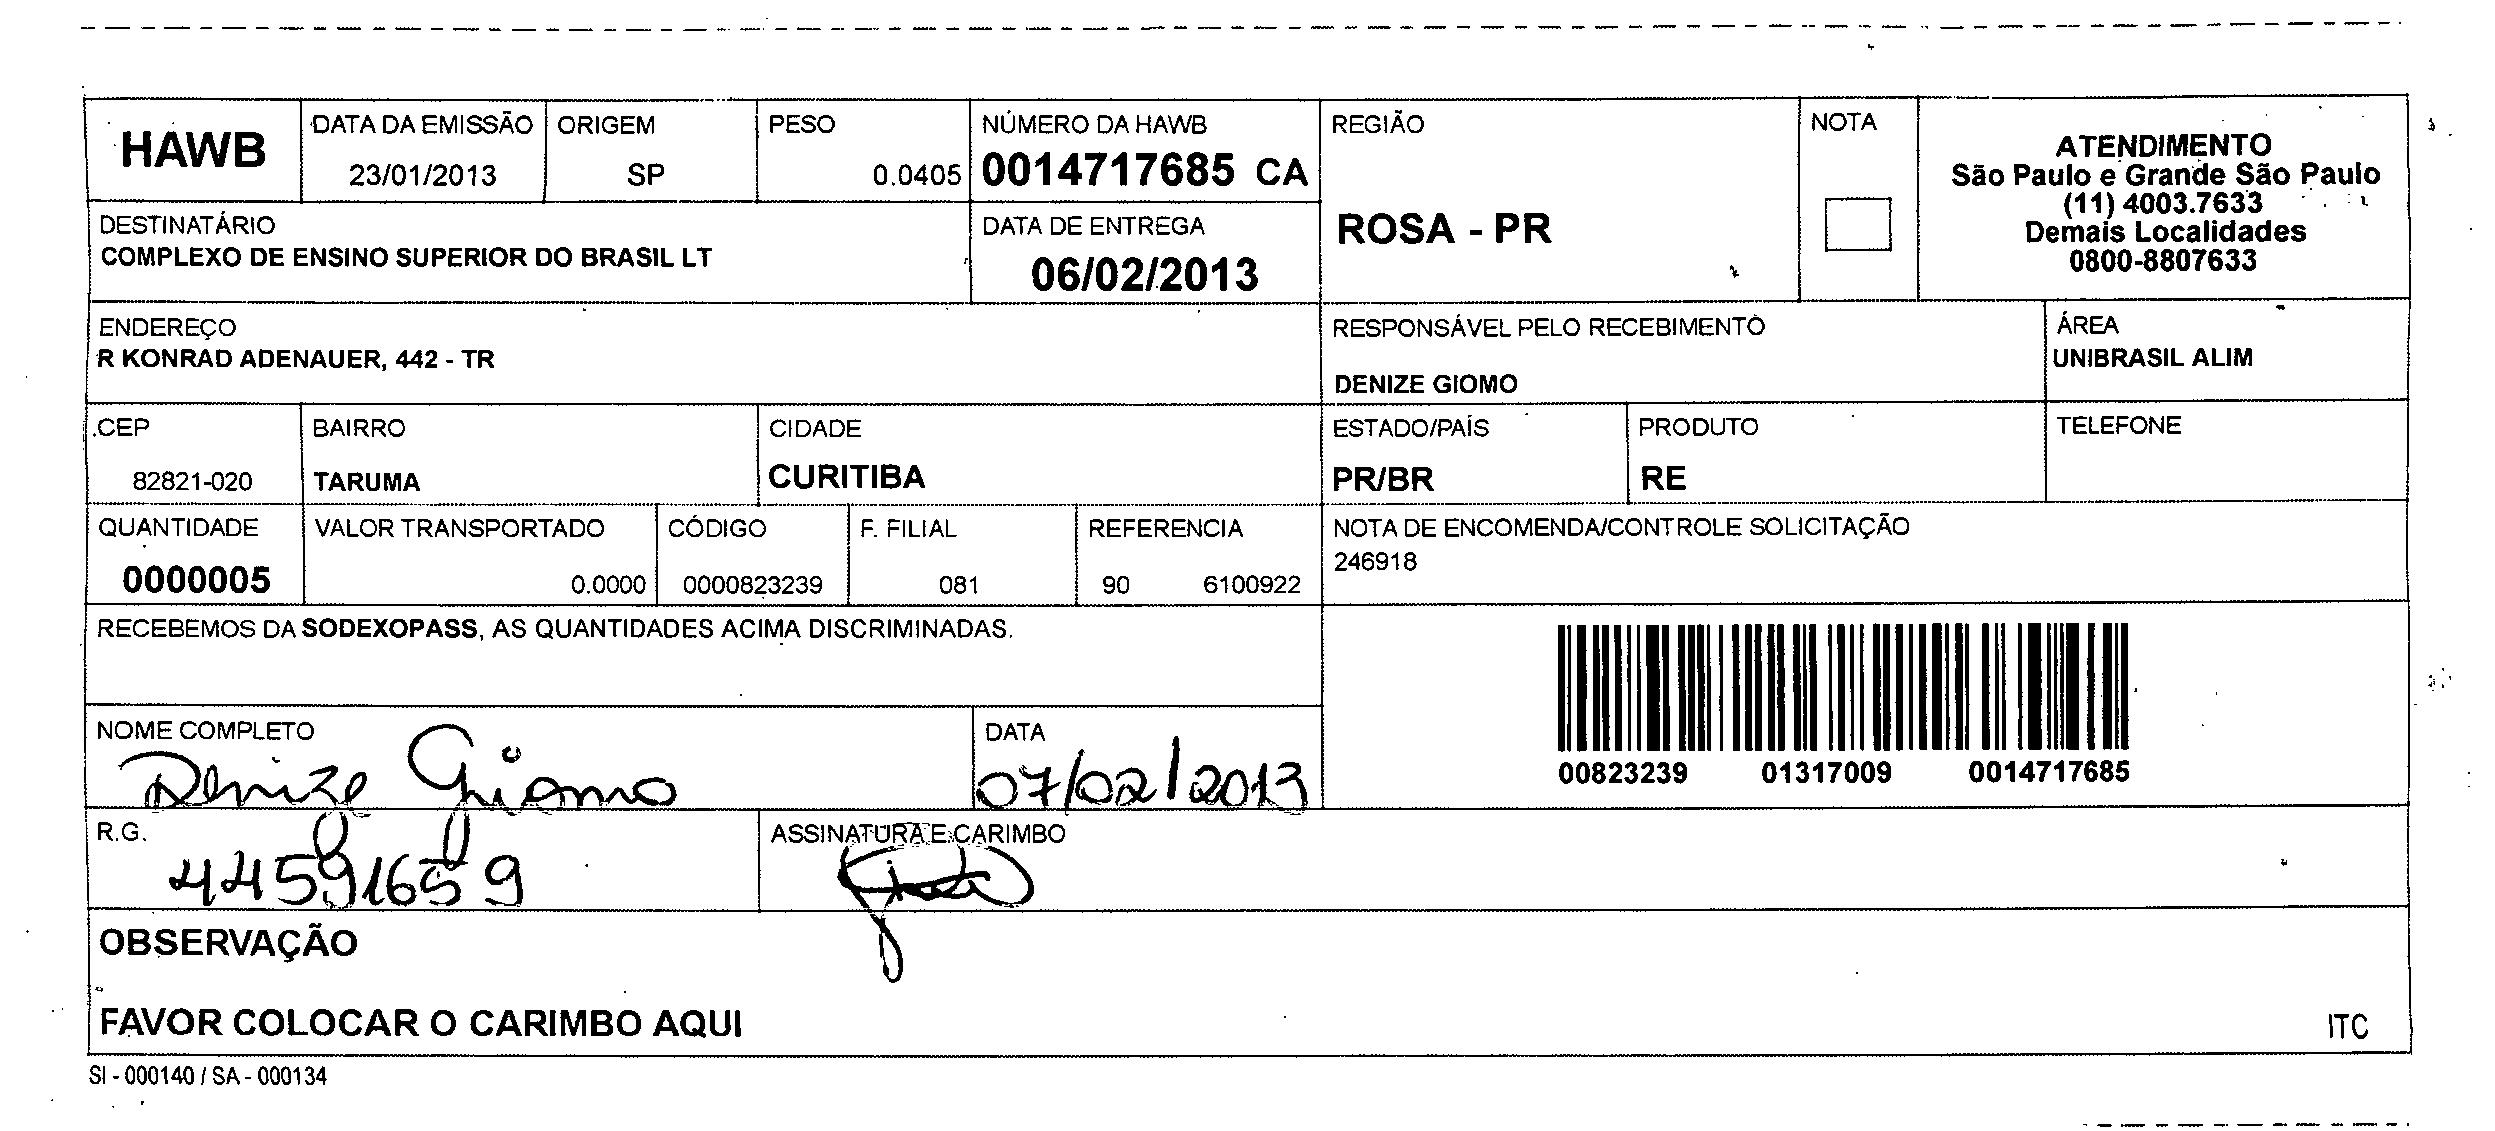 HAWB
DATA DA EMISSÃO
23/01/2013
ORIGEM
SP
PESO
0.0405
NÚMERO DA HAWB
0014717685 CA
REGIÃO
ROSA - PR
NOTA
ATENDIMENTO
São Paulo e Grande São Paulo
(11) 4003.7633
Demais Localidades
0800-8807633
DESTINATÁRIO
COMPLEXO DE ENSINO SUPERIOR DO BRASIL LT
DATA DE ENTREGA
06/02/2013
ENDEREÇO
R KONRAD ADENAUER, 442 - TR
RESPONSÁVEL PELO RECEBIMENTO
DENIZE GIOMO
ÁREA
UNIBRASIL ALIM
CEP
82821-020
BAIRRO
TARUMA
CIDADE
CURITIBA
ESTADO/PAÍS
PR/BR
PRODUTO
RE
TELEFONE
QUANTIDADE
0000005
VALOR TRANSPORTADO
0.0000
CÓDIGO
0000823239
F. FILIAL
081
REFERENCIA
90 6100922
NOTA DE ENCOMENDA/CONTROLE SOLICITAÇÃO
246918
RECEBEMOS DA SODEXOPASS, AS QUANTIDADES ACIMA DISCRIMINADAS.
00823239 01317009 0014717685
NOME COMPLETO
Denize Giomo
DATA
07/02/2013
R.G.
44591659
ASSINATURA E CARIMBO
OBSERVAÇÃO
FAVOR COLOCAR O CARIMBO AQUI
ITC
SI - 000140 / SA - 000134